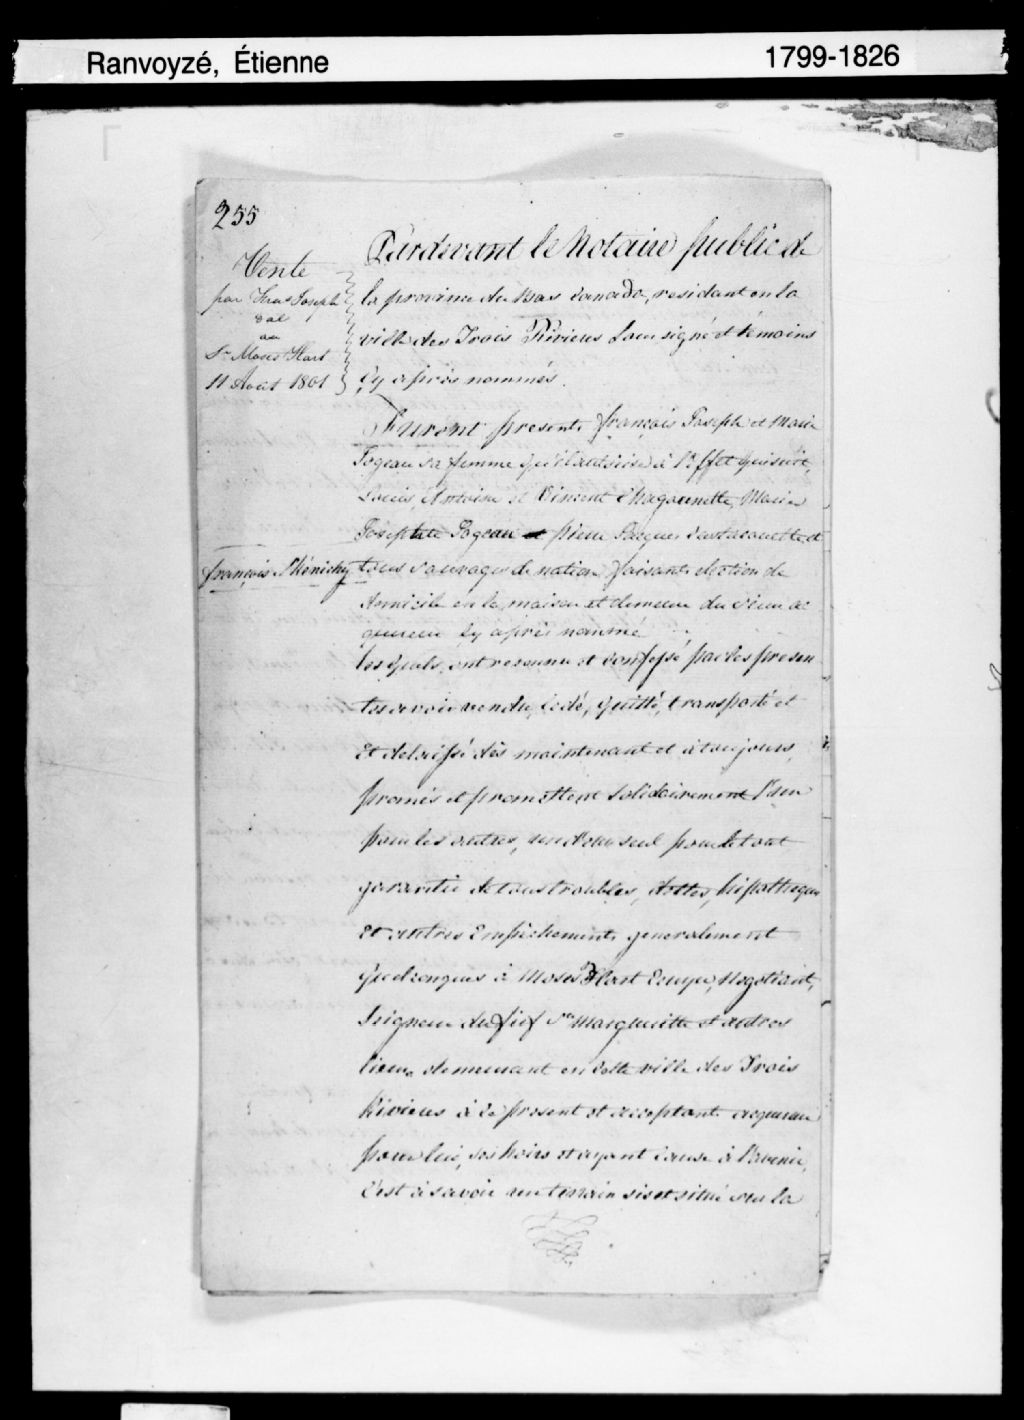 Ranvoyzé, Étienne
1799-1826
255
Vente
par Frans Joseph
& al
au
Sr Moses Hart
11 Août 1801
Pardevant le Notaire public de
la province du Bas Canada, residant en la
ville des Trois Rivieres Soussigné et témoins
Cy après nommés.
Furent presents françois Joseph et Marie
sa femme qu'il autorise à l'effet qui suit,
Louis, Antoine et Vincent Marie
Josephte et pierre Jacques et
françois
tous Sauvages de nation faisants election de
domicile en la maison et demeure du Sieur ac
quereur Cy après nommé
Lesquels ont reconnu et confessé par les presen
tes avoir vendu, Cedé, Quitté, transporté et
Et delaissé dès maintenant et à toujours,
promis et promettent Solidairement l'un
pour les autres, un d'eux seul pour le tout
garantir de tous troubles, dettes, hipotheques
Et autres Empêchements generalement
Quelconques à Moses Hart Ecuyer, Negotiant,
Seigneur du fief Ste Margueritte et autres
lieux demeurant en cette ville des Trois
Rivieres à ce present et acceptant acquereur
pour lui, ses hoirs et ayant cause à l'avenir,
C'est à savoir un terrain sis et situé sur la